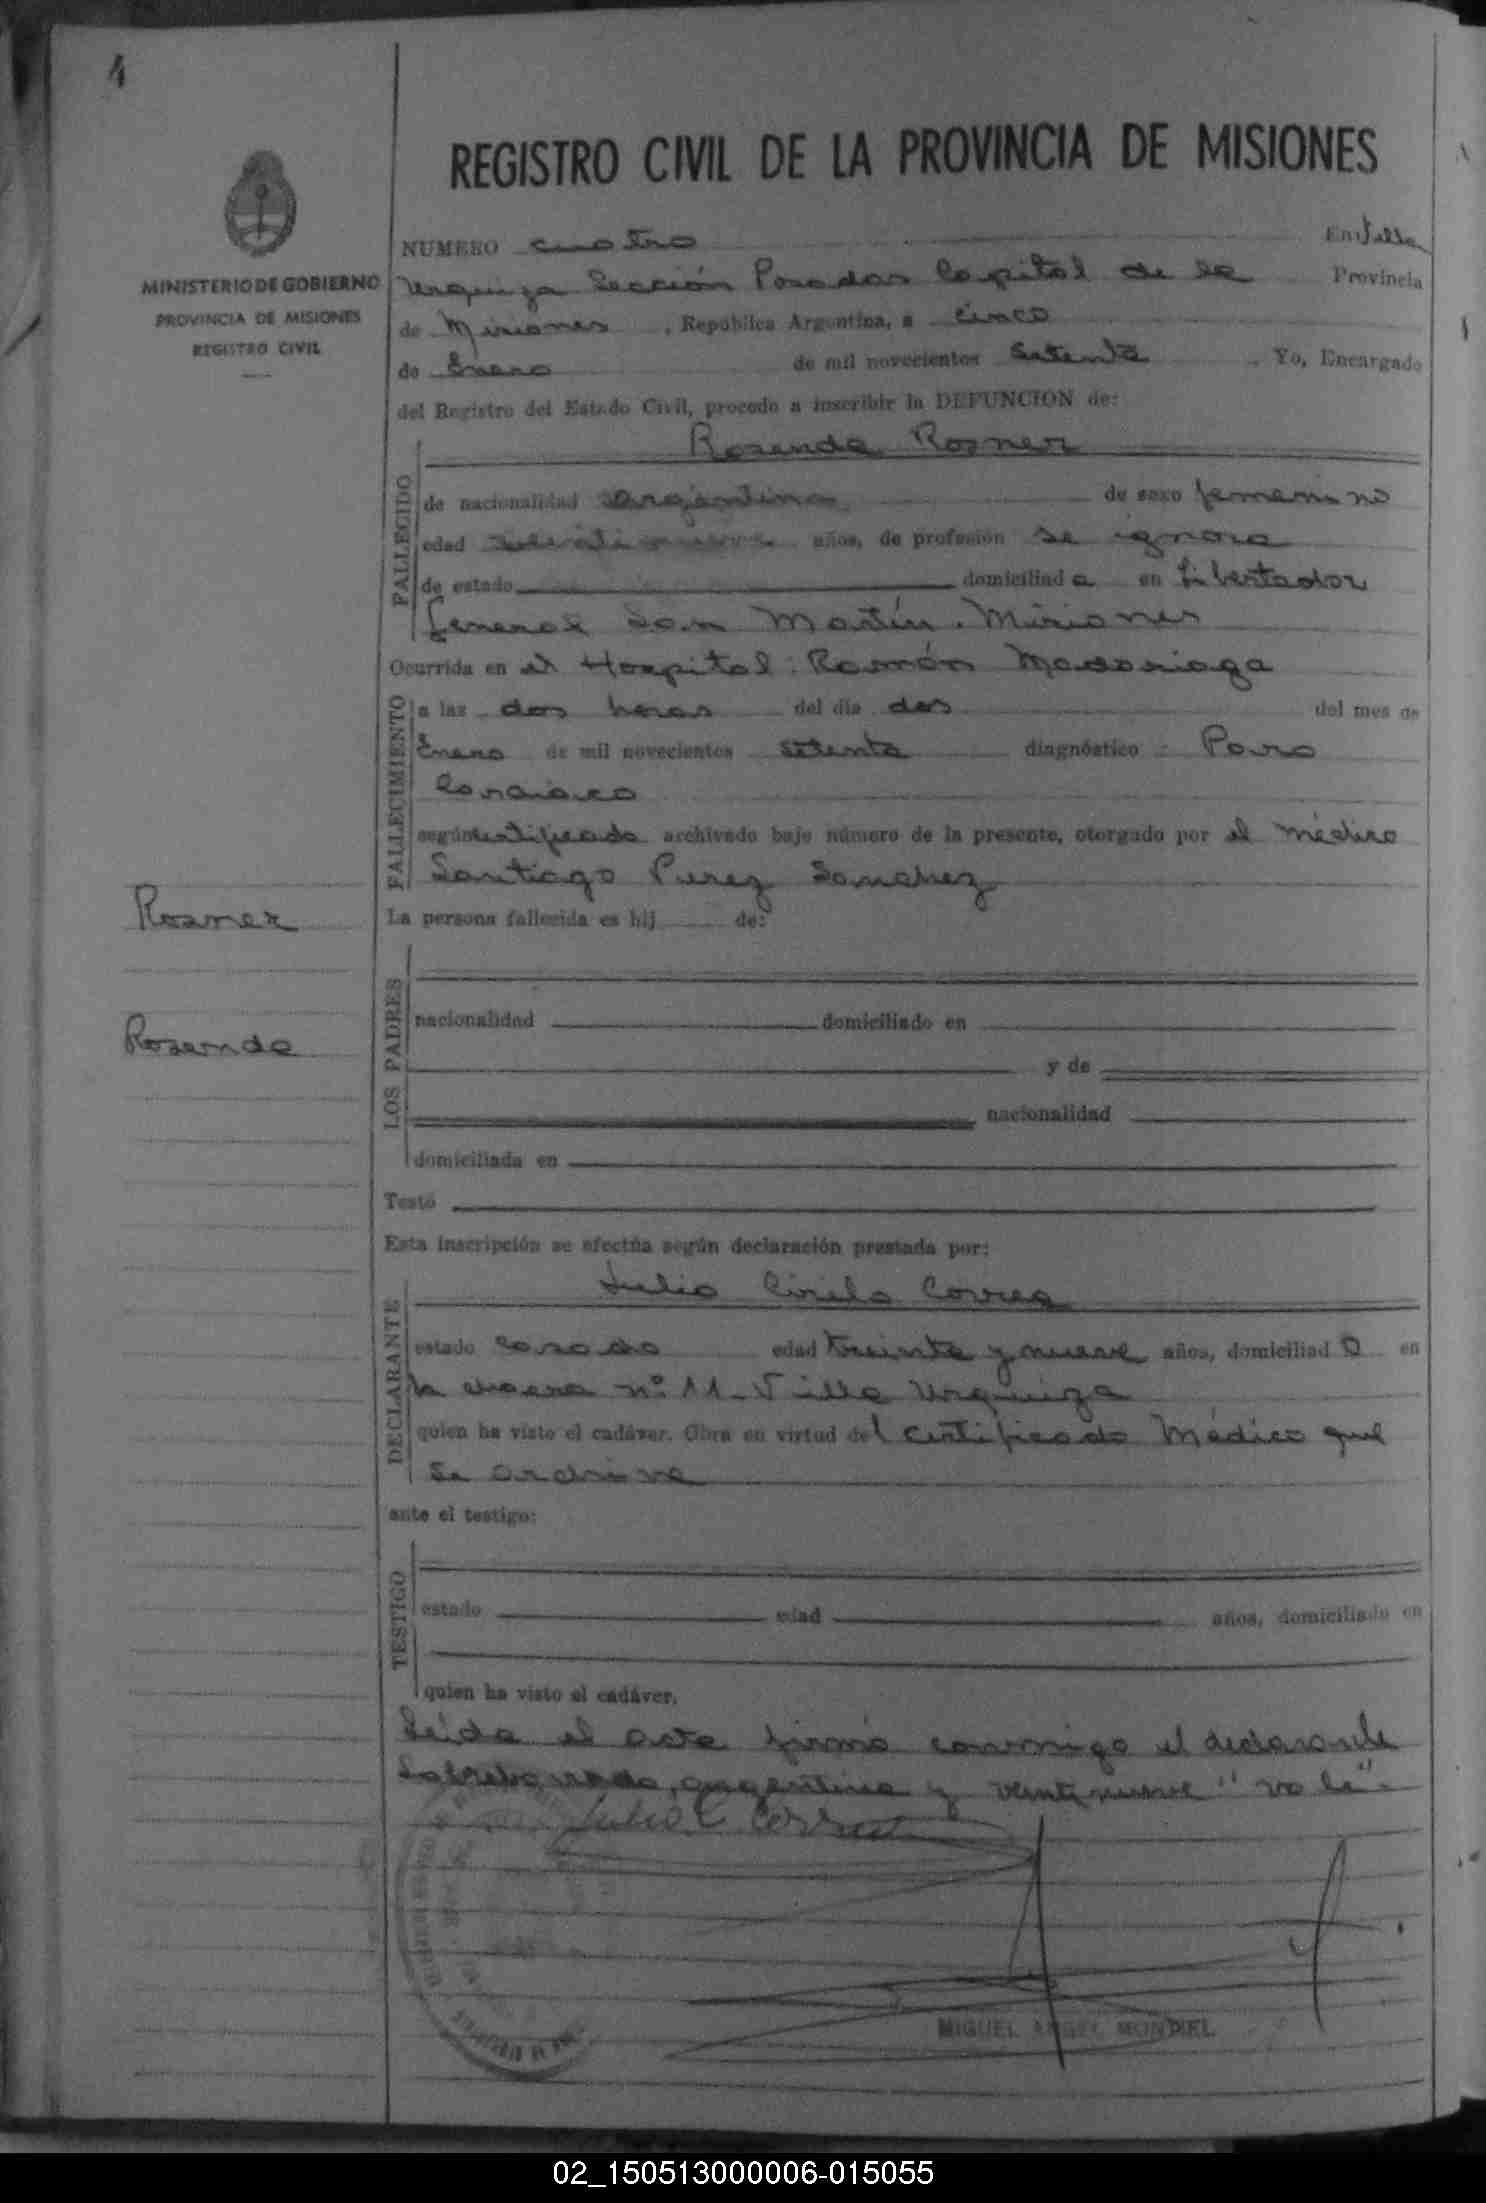 4
REGISTRO CIVIL DE LA PROVINCIA DE MISIONES
MINISTERIO DE GOBIERNO
PROVINCIA DE MISIONES
REGISTRO CIVIL
NUMERO cuatro En Villa
Urquiza Sección Posadas Capital de la Provincia
de Misiones, República Argentina, a cinco
de Enero de mil novecientos setenta. Yo, Encargado
del Registro del Estado Civil, procedo a inscribir la DEFUNCION de:
Rosenda Rosner
FALLECIDO
de nacionalidad argentina de sexo femenino
edad años, de profesión se ignora
de estado domiciliada en Libertador
General San Martín. Misiones
Ocurrida en el Hospital: Ramón Madariaga
FALLECIMIENTO
a las dos horas del día dos del mes de
Enero de mil novecientos setenta diagnóstico: Paro
Cardiaco
según certificado archivado bajo número de la presente, otorgado por el médico
Santiago Perez Sanchez
La persona fallecida es hij de:
Rosner
Rosenda
LOS PADRES
nacionalidad domiciliado en
y de
nacionalidad
domiciliada en
Testó
Esta inscripción se efectúa según declaración prestada por:
Julio Cirilo Correa
DECLARANTE
estado casado edad treinta y nueve años, domiciliado en
la chacra nº 11 - Villa Urquiza
quien ha visto el cadáver. Obra en virtud del certificado Médico que
se archiva
ante el testigo:
TESTIGO
estado edad años, domiciliado en
quien ha visto el cadáver.
Leída el acta firmó conmigo el declarante
Sobreborrado, argentina y veintinueve "vale"-
Julio C Correa
MIGUEL ANGEL MONDIEL
02_150513000006-015055